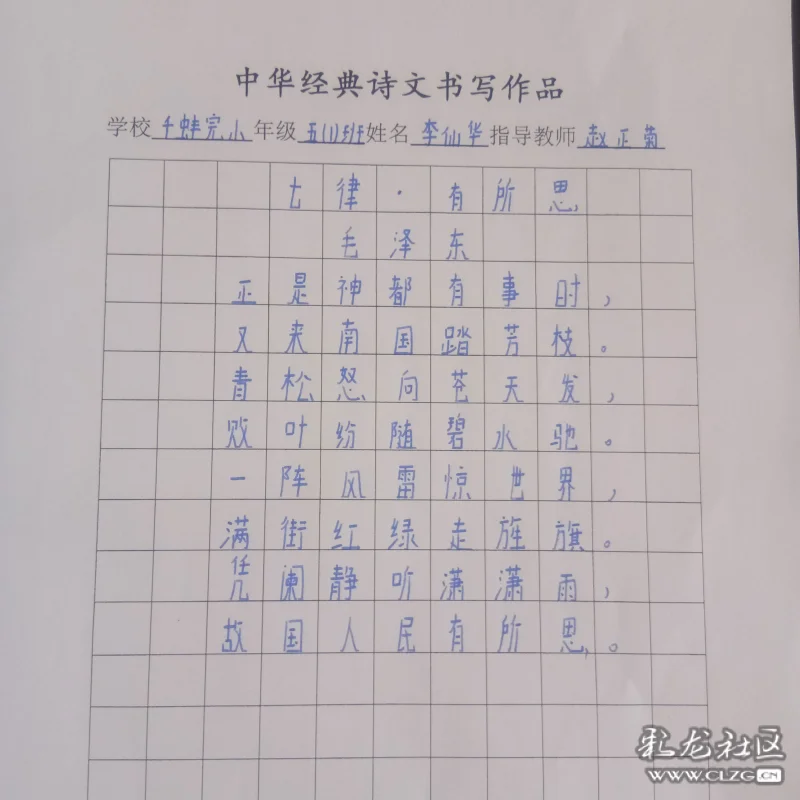 中华经典诗文书写作品
学校 千蚌完小 年级 五(1)班 姓名 李仙华 指导教师 赵正菊
七律·有所思
毛泽东
正是神都有事时，
又来南国踏芳枝。
青松怒向苍天发，
败叶纷随碧水驰。
一阵风雷惊世界，
满街红绿走旌旗。
凭阑静听潇潇雨，
故国人民有所思。
乳龙社区
WWW.CLZG.CN